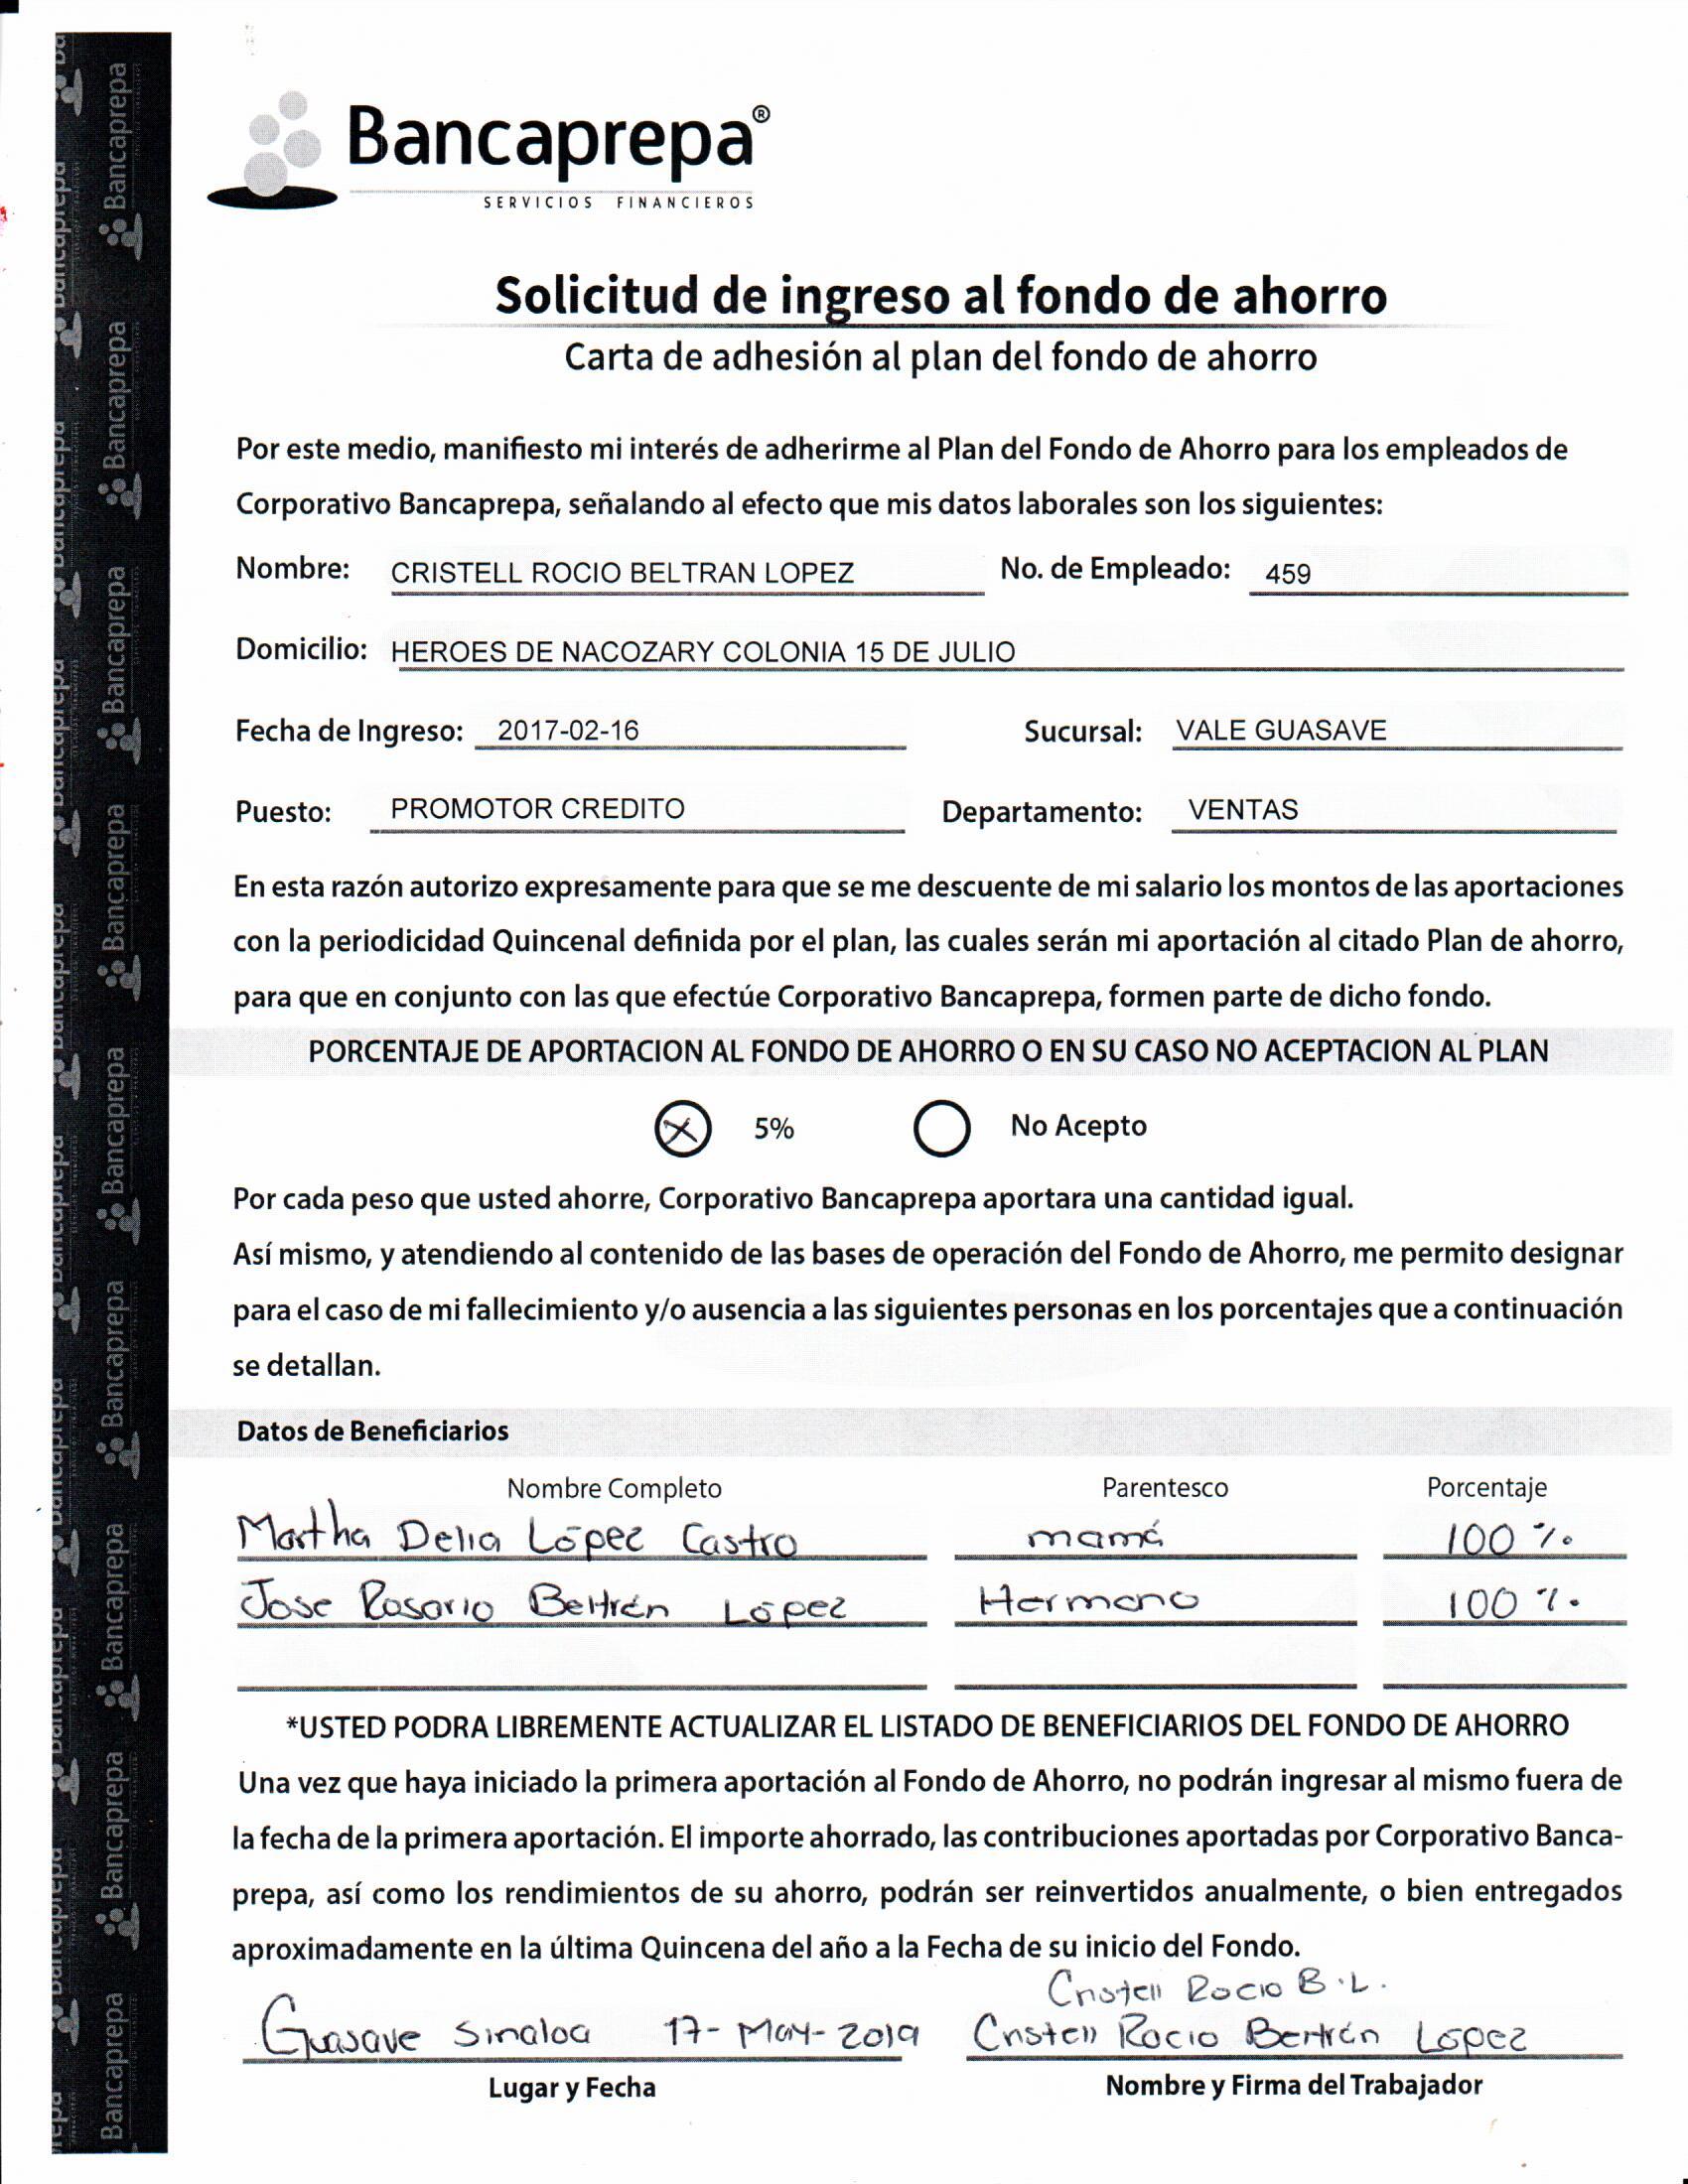 Bancaprepa®
SERVICIOS FINANCIEROS
Solicitud de ingreso al fondo de ahorro
Carta de adhesión al plan del fondo de ahorro
Por este medio, manifiesto mi interés de adherirme al Plan del Fondo de Ahorro para los empleados de
Corporativo Bancaprepa, señalando al efecto que mis datos laborales son los siguientes:
Nombre: CRISTELL ROCIO BELTRAN LOPEZ No. de Empleado: 459
Domicilio: HEROES DE NACOZARY COLONIA 15 DE JULIO
Fecha de Ingreso: 2017-02-16 Sucursal: VALE GUASAVE
Puesto: PROMOTOR CREDITO Departamento: VENTAS
En esta razón autorizo expresamente para que se me descuente de mi salario los montos de las aportaciones
con la periodicidad Quincenal definida por el plan, las cuales serán mi aportación al citado Plan de ahorro,
para que en conjunto con las que efectúe Corporativo Bancaprepa, formen parte de dicho fondo.
PORCENTAJE DE APORTACION AL FONDO DE AHORRO O EN SU CASO NO ACEPTACION AL PLAN
X 5% No Acepto
Por cada peso que usted ahorre, Corporativo Bancaprepa aportara una cantidad igual.
Así mismo, y atendiendo al contenido de las bases de operación del Fondo de Ahorro, me permito designar
para el caso de mi fallecimiento y/o ausencia a las siguientes personas en los porcentajes que a continuación
se detallan.
Datos de Beneficiarios
Nombre Completo Parentesco Porcentaje
Martha Delia López Castro mamá 100 %
Jose Rosario Beltrán López Hermano 100 %
*USTED PODRA LIBREMENTE ACTUALIZAR EL LISTADO DE BENEFICIARIOS DEL FONDO DE AHORRO
Una vez que haya iniciado la primera aportación al Fondo de Ahorro, no podrán ingresar al mismo fuera de
la fecha de la primera aportación. El importe ahorrado, las contribuciones aportadas por Corporativo Banca-
prepa, así como los rendimientos de su ahorro, podrán ser reinvertidos anualmente, o bien entregados
aproximadamente en la última Quincena del año a la Fecha de su inicio del Fondo.
Cristell Rocio B.L.
Guasave Sinaloa 17-May-2019 Cristell Rocio Beltrán López
Lugar y Fecha Nombre y Firma del Trabajador